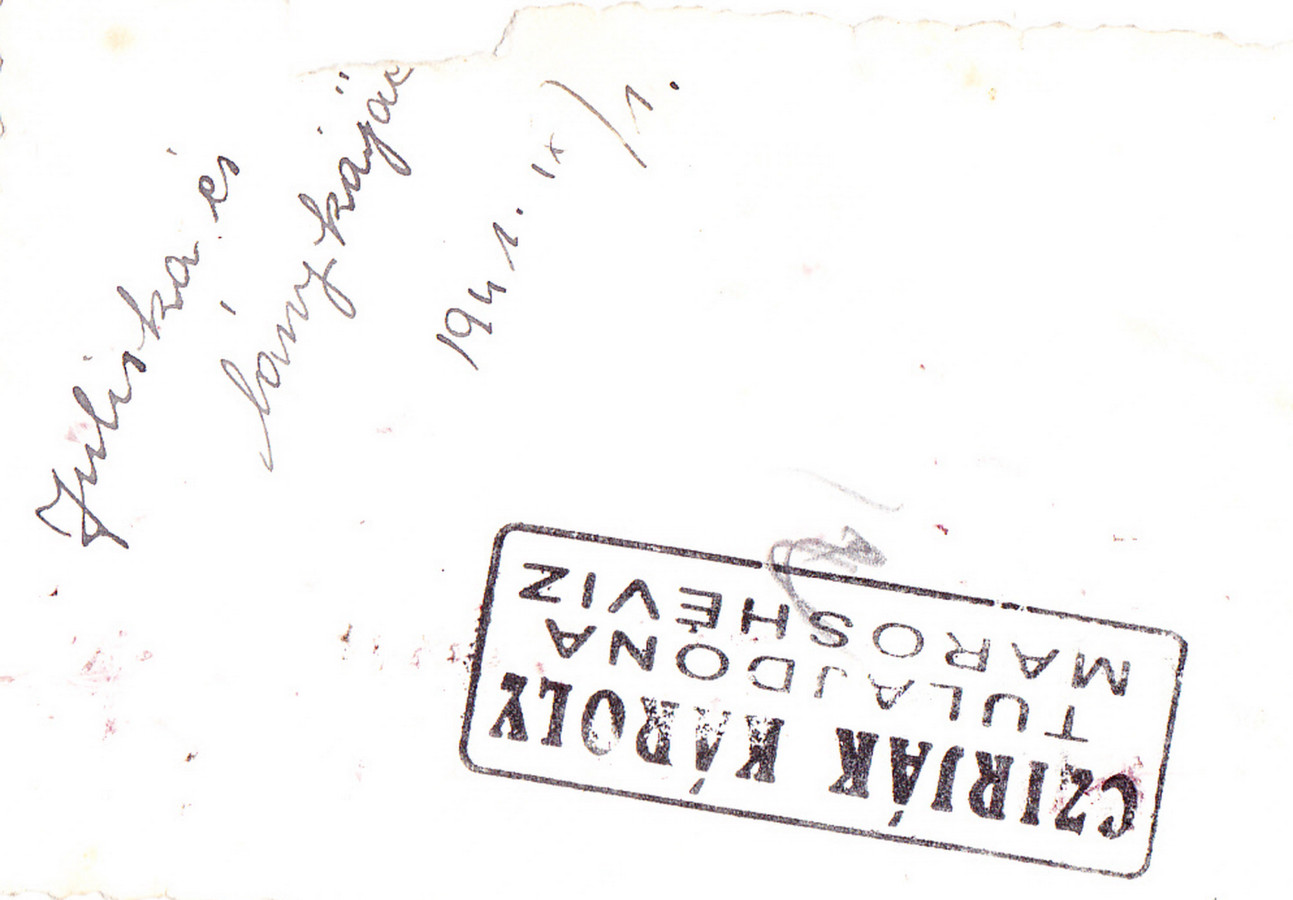 Juliska és
lánykájáë
1941. IX/1.
CZIRJÁK KÁROLY
TULAJDONA
MAROSHÉVIZ